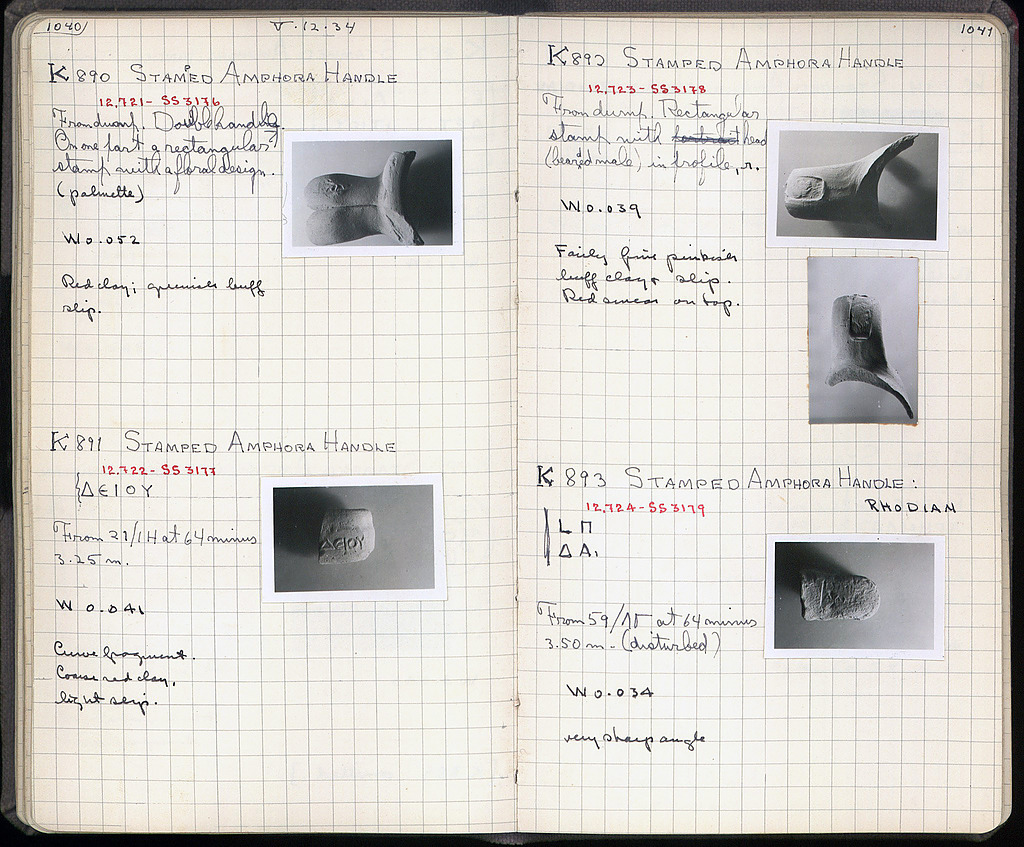 1040
V·12·34
K 890 STAMPED AMPHORA HANDLE
12,721 - SS 3176
From dump. Double handle.
On one part a rectangular
stamp with a floral design.
(palmette)
W 0.052
Red clay; greenish buff
slip.
K 891 STAMPED AMPHORA HANDLE
12,722 - SS 3177
ΔЄΙΟΥ
From 21/ΙΗ at 64 minus
3.25 m.
W 0.041
Curve fragment.
Coarse red clay,
light slip.
1041
K 892 STAMPED AMPHORA HANDLE
12,723 - SS 3178
From dump. Rectangular
stamp with head
(bearded male) in profile, r.
W 0.039
Fairly fine pinkish
buff clay & slip.
Red smear on top.
K 893 STAMPED AMPHORA HANDLE:
RHODIAN
12,724 - SS 3179
L Π
Δ Α.
From 59/ΙΕ at 64 minus
3.50 m - (disturbed)
W 0.034
very sharp angle